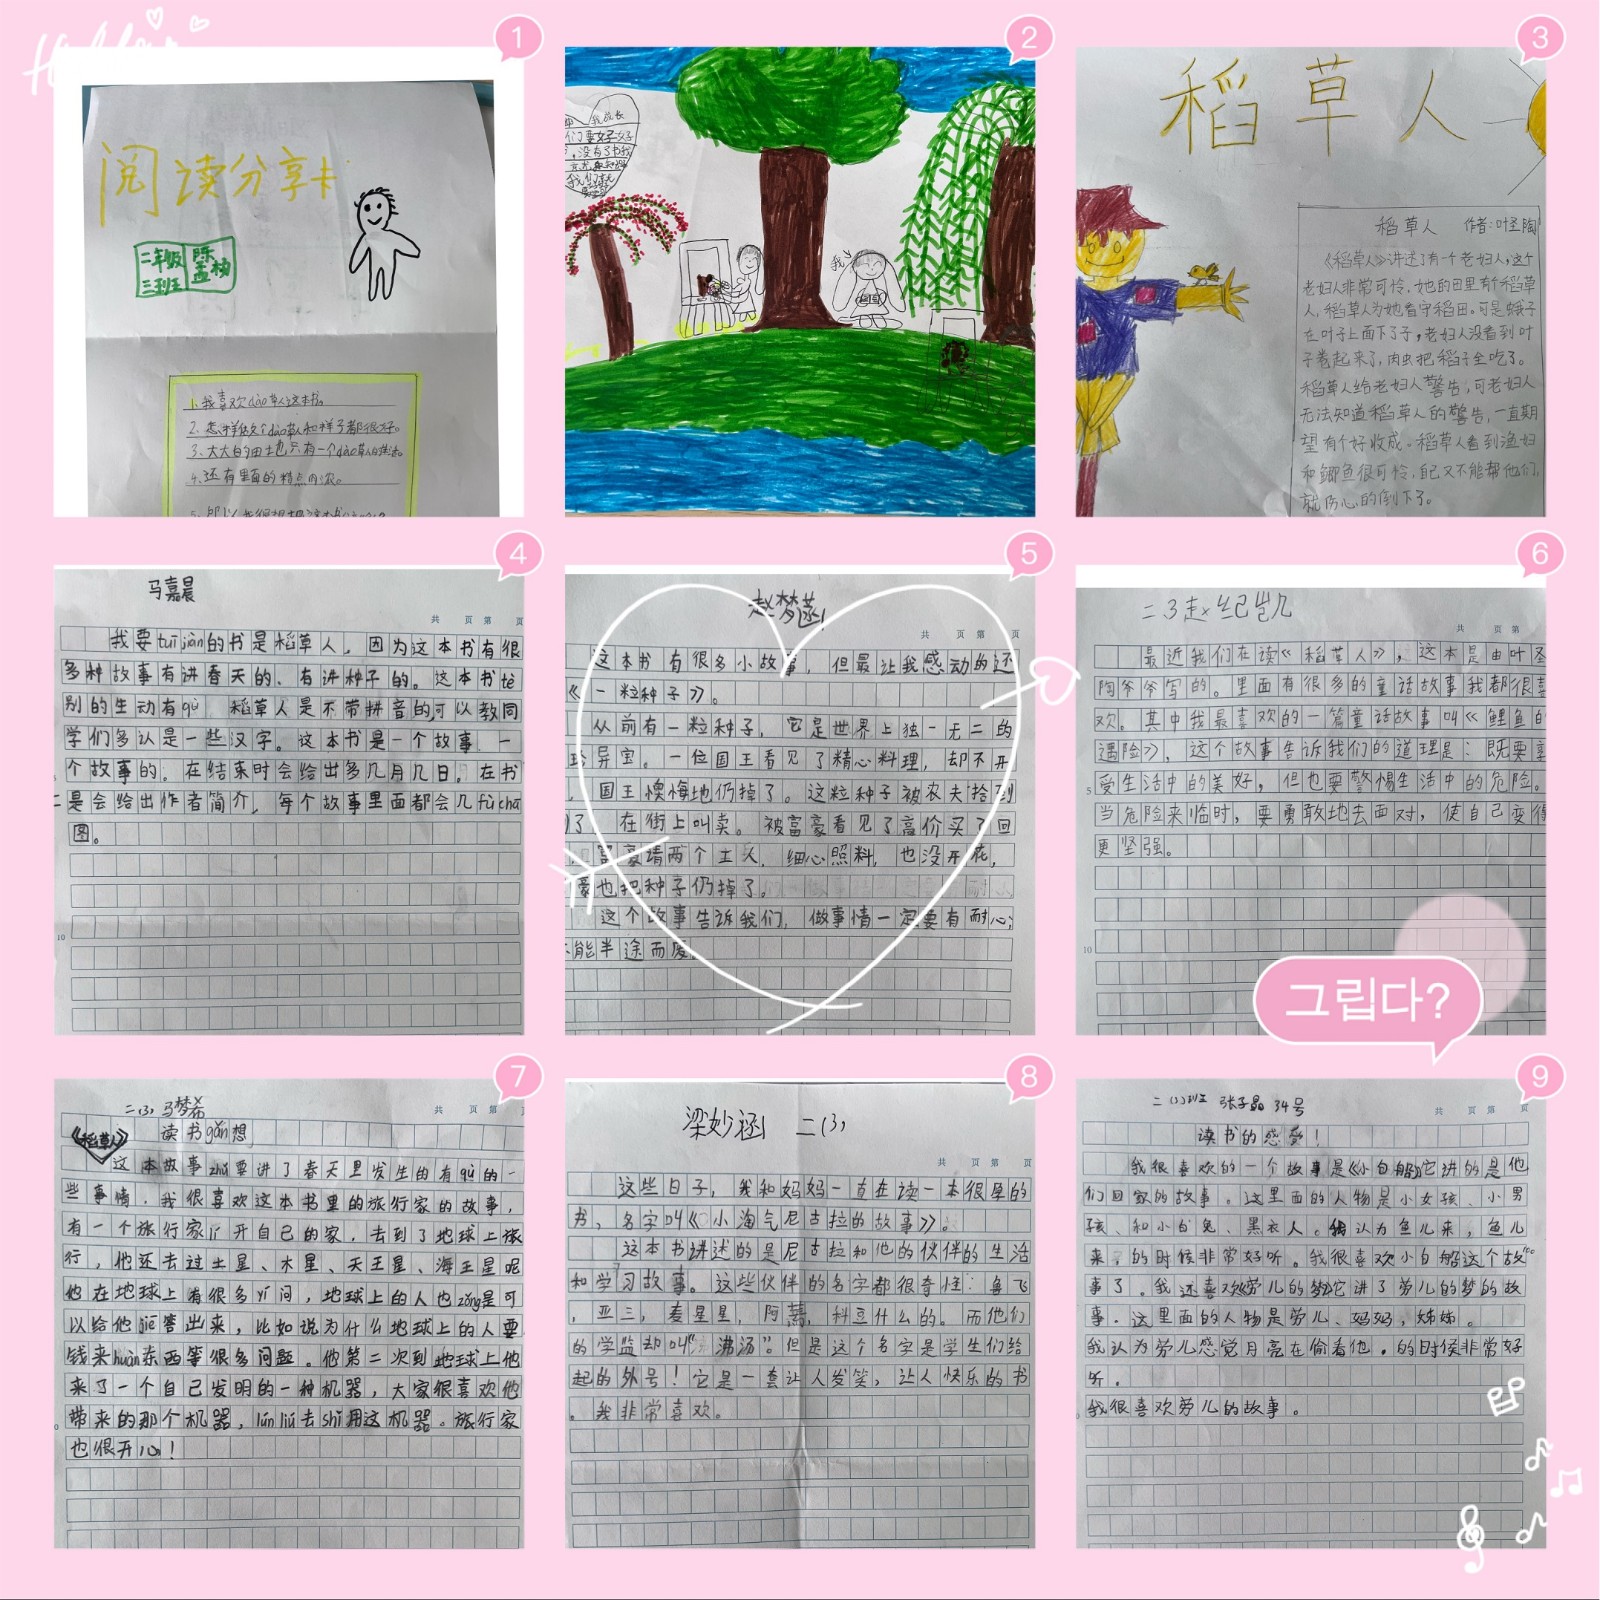 Hello
1
阅读分享卡
二年级
三班
陈孟柏
1.我喜欢dào草人这本书。
3.大大的田土也只有一个dào草人
4.还有里面的特点内农。
2
我成长
我
3
稻草人
稻草人 作者:叶圣陶
《稻草人》讲述了有一个老妇人,这个
老妇人非常可怜,她的田里有个稻草
人,稻草人为她看守稻田。可是蛾子
在叶子上面下了子,老妇人没看到叶
子卷起来了,肉虫把稻子全吃了。
稻草人给老妇人警告,可老妇人
无法知道稻草人的警告,一直期
望有个好收成。稻草人看到渔妇
和鲫鱼很可怜,自己又不能帮他们,
就伤心的倒下了。
4
马嘉晨
共 页 第 页
我要tuī jiàn的书是稻草人，因为这本书有很
多种故事有讲春天的、有讲种子的。这本书tè
别的生动有qù 稻草人是不带拼音的,可以教同
学们多认是一些汉字。这本书是一个故事 一
个故事的。在结束时会给出多几月几日。在书
上是会给出作者简介，每个故事里面都会几fù chā
图。
10
5
赵梦菡
共 页 第 页
这本书有很多小故事，但最让我感动的还
《一粒种子》。
从前有一粒种子，它是世界上独一无二的
珍异宝。一位国王看见了精心料理，却不开
，国王懊悔地仍掉了。这粒种子被农夫拾到
了，在街上叫卖。被富豪看见了高价买了回
富豪请两个工人，细心照料，也没开花，
豪也把种子仍掉了。
这个故事告诉我们，做事情一定要有耐心;
不能半途而废
6
二3 赵纪岂几
共 页 第
最近我们在读《稻草人》，这本是由叶圣
陶爷爷写的。里面有很多的童话故事我都很喜
欢。其中我最喜欢的一篇童话故事叫《鲤鱼的
遇险》，这个故事告诉我们的道理是：既要享
受生活中的美好，但也要警惕生活中的危险。
5
当危险来临时，要勇敢地去面对，使自己变得
更坚强。
10
그립다?
7
二(3) 马梦希
共 页 第 页
《稻草人》 读书gǎn想
这本故事zhǔ要讲了春天里发生的有qù的一
些事情，我很喜欢这本书里的旅行家的故事，
有一个旅行家lí开自己的家，去到了地球上旅
行，他还去过土星、木星、天王星、海王星呢
他在地球上有很多yí问，地球上的人也zǒng是可
以给他jiě答出来，比如说为什么地球上的人要
钱来huàn东西等很多问题。他第二次到地球上他
来了一个自己发明的一种机器，大家很喜欢他
带来的那个机器，lún liú去shǐ用这机器。旅行家
也很开心！
8
梁妙涵 二(3)
共 页 第 页
这些日子，我和妈妈一直在读一本很厚的
书，名字叫《小淘气尼古拉的故事》。
这本书讲述的是尼古拉和他的伙伴的生活
和学习故事。这些伙伴的名字都很奇怪：鲁飞
，亚三，麦星星，阿蒽，科豆什么的。而他们
的学监却叫“沸汤”。但是这个名字是学生们给
起的外号！它是一套让人发笑，让人快乐的书
。我非常喜欢。
9
二(3)班 张子晶 34号
共 页 第 页
读书的感受！
我很喜欢的一个故事是《小白船》它讲的是他
们回家的故事。这里面的人物是小女孩、小男
孩、和小白兔、黑衣人。我认为鱼儿来，鱼儿
来，的时候非常好听。我很喜欢小白船这个故
事了。我还喜欢《劳儿的梦》它讲了劳儿的梦的故
事。这里面的人物是劳儿、妈妈，姊姊。
我认为劳儿感觉月亮在偷看他。的时候非常好
听。
我很喜欢劳儿的故事。